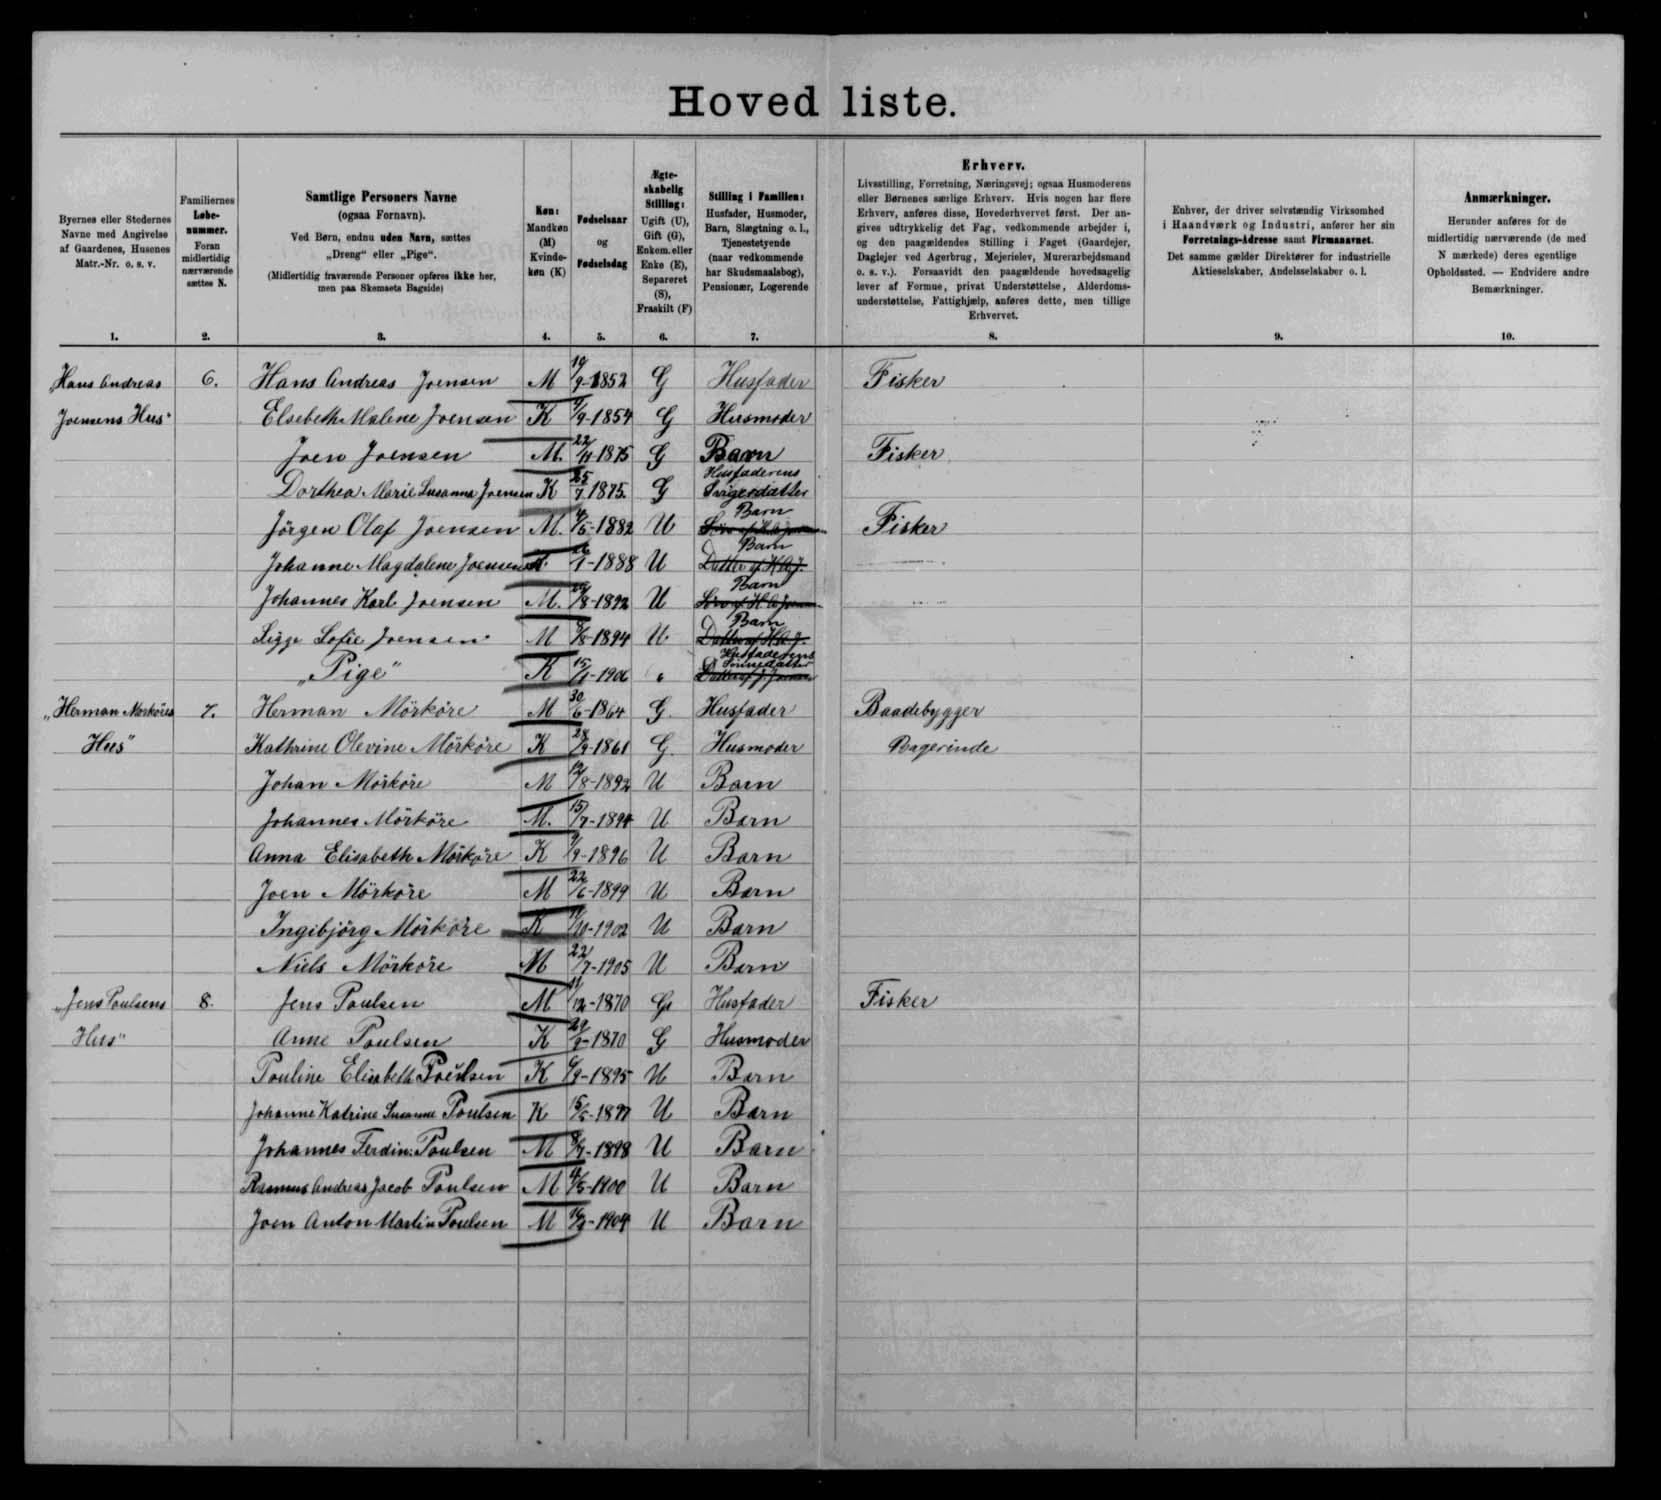 Hoved liste.
Byernes eller Stedernes
Navne med Angivelse
af Gaardenes, Husenes
Matr.-Nr. o. s. v.
Familiernes
Løbe-
nummer.
Foran
midlertidig
nærværende
sættes N.
Samtlige Personers Navne
(ogsaa Fornavn).
Ved Børn, endnu uden Navn, sættes
„Dreng" eller „Pige".
(Midlertidig fraværende Personer opføres ikke her,
men paa Skemaets Bagside)
Køn:
Mandkøn
(M)
Kvinde-
køn (K)
Fødselsaar
og
Fødselsdag
Ægte-
skabelig
Stilling:
Ugift (U),
Gift (G),
Enkem. eller
Enke (E),
Separeret
(S),
Fraskilt (F)
Stilling i Familien:
Husfader, Husmoder,
Barn, Slægtning o. l.,
Tjenestetyende
(naar vedkommende
har Skudsmaalsbog),
Pensionær, Logerende
Erhverv.
Livsstilling, Forretning, Næringsvej; ogsaa Husmoderens
eller Børnenes særlige Erhverv. Hvis nogen har flere
Erhverv, anføres disse, Hovederhvervet først. Der an-
gives udtrykkelig det Fag, vedkommende arbejder i,
og den paagældendes Stilling i Faget (Gaardejer,
Daglejer ved Agerbrug, Mejerielev, Murerarbejdsmand
o. s. v.). Forsaavidt den paagældende hovedsagelig
lever af Formue, privat Understøttelse, Alderdoms-
understøttelse, Fattighjælp, anføres dette, men tillige
Erhvervet.
Enhver, der driver selvstændig Virksomhed
i Haandværk og Industri, anfører her sin
Forretnings-Adresse samt Firmanavnet.
Det samme gælder Direktører for industrielle
Aktieselskaber, Andelsselskaber o. l.
Anmærkninger.
Herunder anføres for de
midlertidig nærværende (de med
N mærkede) deres egentlige
Opholdssted. — Endvidere andre
Bemærkninger.
1. 2. 3. 4. 5. 6. 7. 8. 9. 10.
Hans Andreas 6. Hans Andreas Joensen M /9-1852 G Husfader Fisker
Joensens Hus" Elsebeth Malene Joensen K /9-1854 G Husmoder
Joen Joensen M. 22/11-1875 G Barn Fisker
Husfaderens
Dorthea Marie Susanna Joensen K 25/7 1875. G Svigerdatter
Barn
Jörgen Olaf Joensen M. 4/5-1882 U Fisker
Barn
Johanne Magdalene Joensen K. /1-1888 U Datter af H.A.J.
Barn
Johannes Karl Joensen M. /8-1892 U Søn af H.A. Joensen
Barn
Sofie Joensen M 8/8-1894 U Datter af H.A.J.
Husfaderens
Sønnedatter
„Pige" K 15/1-1906 Datter af J. Joensen
„Herman Mörköres 7. Herman Mörköre M 30/6-1864 G. Husfader Baadebygger
Hus" Kathrine Olevine Mörköre K 28/9-1861 G. Husmoder Bagerinde
Johan Mörköre M 12/8-1892 U Barn
Johannes Mörköre M. 15/7-1894 U Barn
Anna Elisabeth Mörköre K 9/9-1896 U Barn
Joen Mörköre M 22/6-1899 U Barn
Ingibjörg Mörköre K /10-1902 U Barn
Niels Mörköre M 22/7-1905 U Barn
„Jens Poulsens 8. Jens Poulsen M 11/12-1870 G Husfader Fisker
Hus" Anne Poulsen K 29/9-1870 G Husmoder
Pauline Elisabeth Poulsen K 6/9-1895 U Barn
Johanne Katrine Susanne Poulsen K 15/5-1897 U Barn
Johannes Ferdin: Poulsen M 8/7-1898 U Barn
Rasmus Andreas Jacob Poulsen M 4/5-1900 U Barn
Joen Anton Martin Poulsen M -1904 U Barn